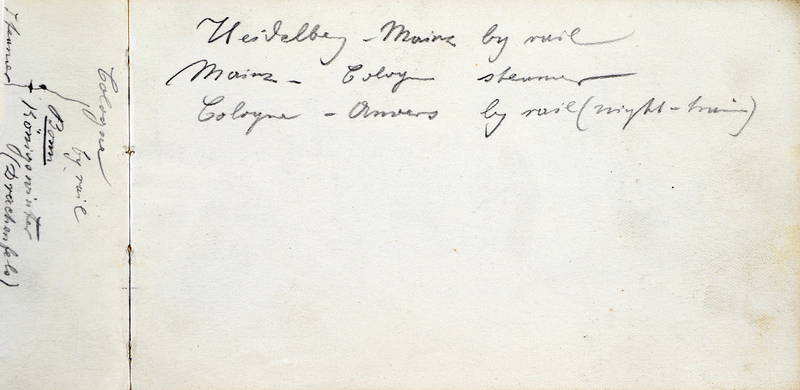 Heidelberg - Mainz by rail
Mainz - Cologn steamer
Cologne - Anvers by rail (night-train)
Cologne
by rail
Bonn
Königswinter
(Drachenfels)
steamer